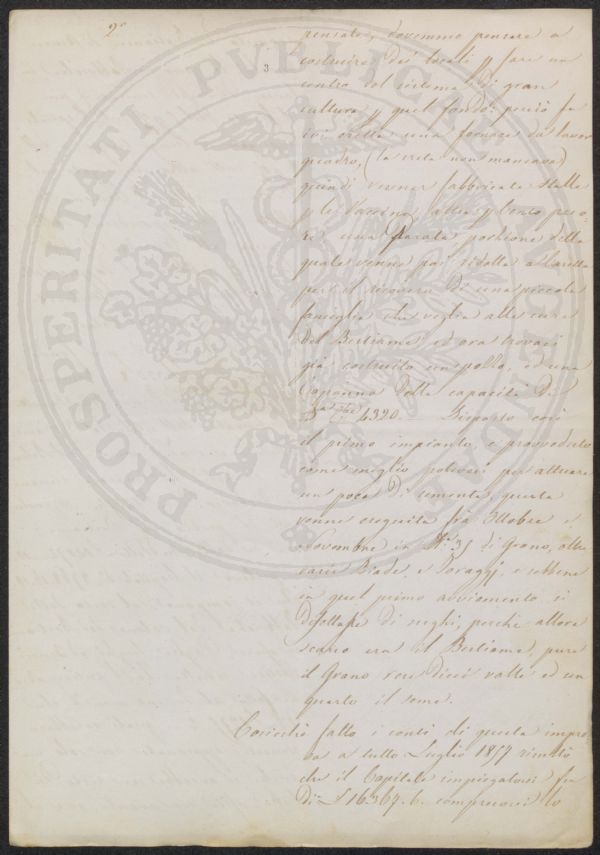 2°
3
pensato, dovemmo pensare a
costruire dei locali p fare un
centro col sistema di gran
cultura p quel fondo: perciò fu
ivi eretta una fornace da lavoro
quadro, (la creta non mancava)
quindi venner fabbricate stalle
p le Vaccine, altra p bestie peco
re una porzione della
quale venne poi ridotta a Casetta
per il ricovero di una piccola
famiglia che veglia alle cure
del Bestiame, ed ora trovasi
già costruito un pollo, ed una
Capanna della capacità di
4320. Disposto così
il primo impianto, e provveduto
come meglio potevasi per attuare
un poca di sementa, questa
venne eseguita fra Ottobre e
Novembre in 35 di Grano, oltre
varie Biade, e Foraggj, e sebbene
in quel primo avviamento si
di sughi, perchè allora
scarso era il Bestiame, pure
il Grano rese dieci volte ed un
quarto il seme.
Cosicchè fatto i conti di questa impre
sa a tutto Luglio 1857 risultò
che il Capitale impiegatovi fu
di £ 16367. 6. compresovi lo
PROSPERITATI PUBLICAE AUGENDAE